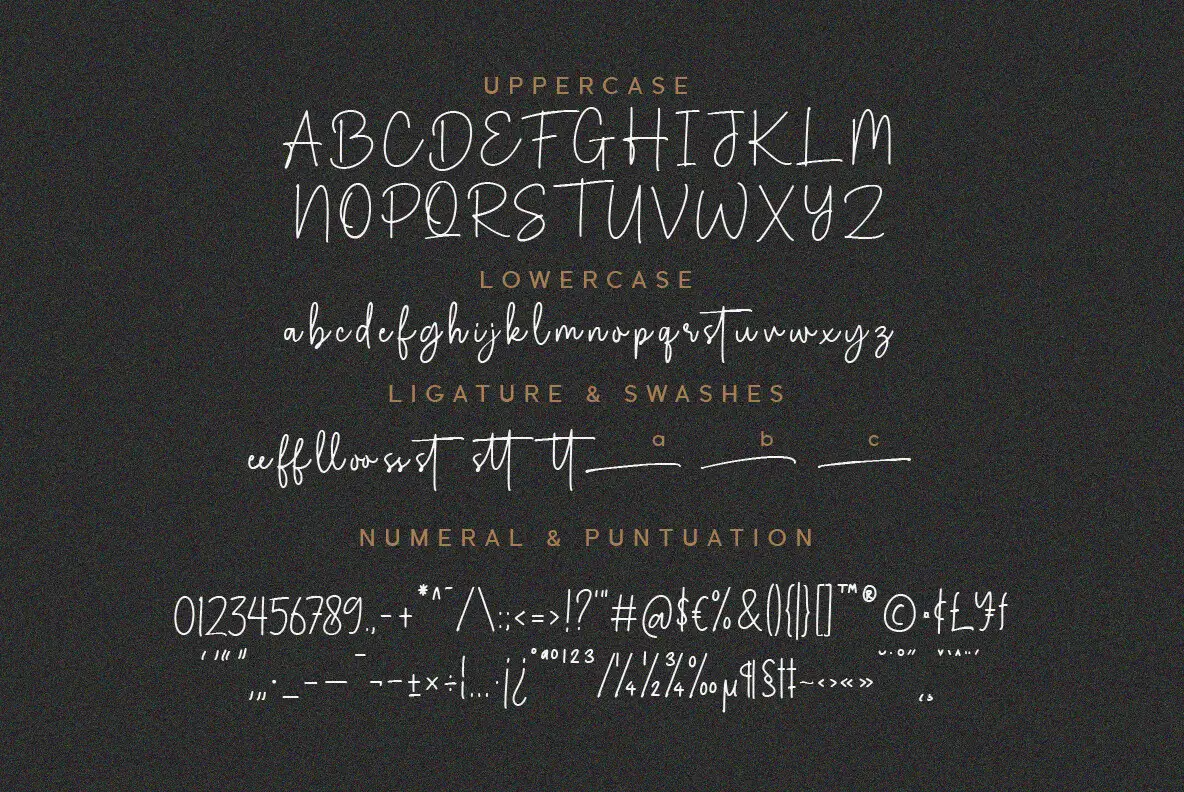 UPPERCASE
ABCDEFGHIJKLM
NOPQRSTUVWXYZ
LOWERCASE
abcdefghijklmnopqrstuvwxyz
LIGATURE & SWASHES
a b c
ee ff ll oo ss st stt tt
NUMERAL & PUNTUATION
0123456789.,-+*^¯/\:;<=>!?'"#@$€%&(){|}[]™®©¤¢£¥ƒ
‚„·_–—¬-±×÷¦…·¡¿°ªº123⁄¼½¾‰µ¶§†‡~‹›«»